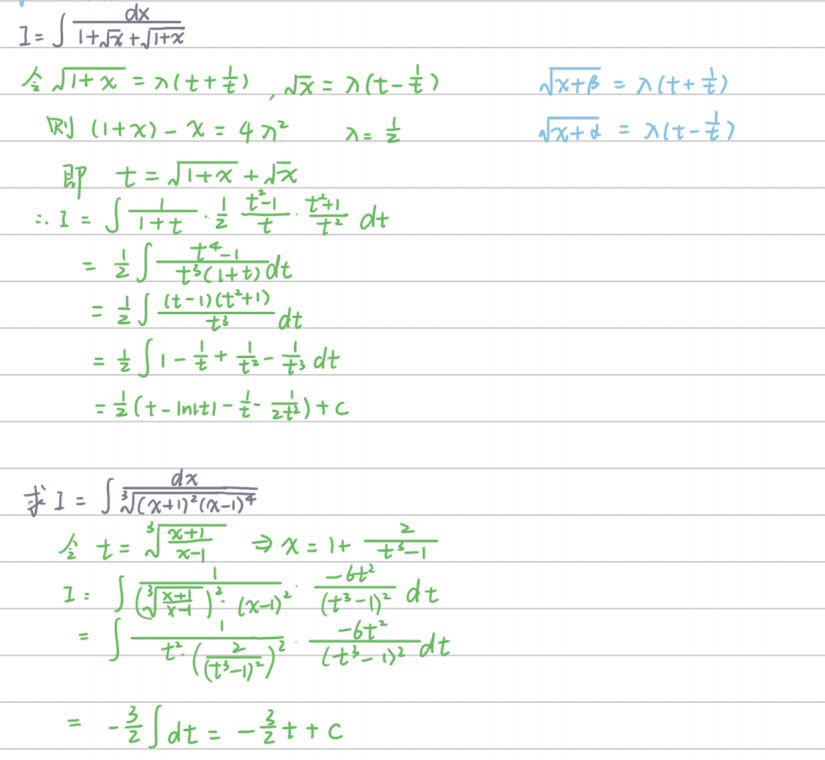 I = ∫ dx / (1+√x+√(1+x))
令 √(1+x) = λ(t+1/t), √x = λ(t-1/t) √(x+β) = λ(t+1/t)
则 (1+x) - x = 4λ² λ = 1/2 √(x+α) = λ(t-1/t)
即 t = √(1+x) + √x
∴ I = ∫ 1/(1+t) · 1/2 (t²-1)/t · (t²+1)/t² dt
= 1/2 ∫ (t⁴-1)/(t³(1+t)) dt
= 1/2 ∫ (t-1)(t²+1)/t³ dt
= 1/2 ∫ 1 - 1/t + 1/t² - 1/t³ dt
= 1/2 (t - ln|t| - 1/t - 1/(2t²)) + C
求 I = ∫ dx / ∛((x+1)²(x-1)⁴)
令 t = ∛((x+1)/(x-1)) ⇒ x = 1 + 2/(t³-1)
I = ∫ 1/((∛((x+1)/(x-1)))² · (x-1)²) · -6t²/(t³-1)² dt
= ∫ 1/(t² · (2/(t³-1)²)²) · -6t²/(t³-1)² dt
= -3/2 ∫ dt = -3/2 t + C